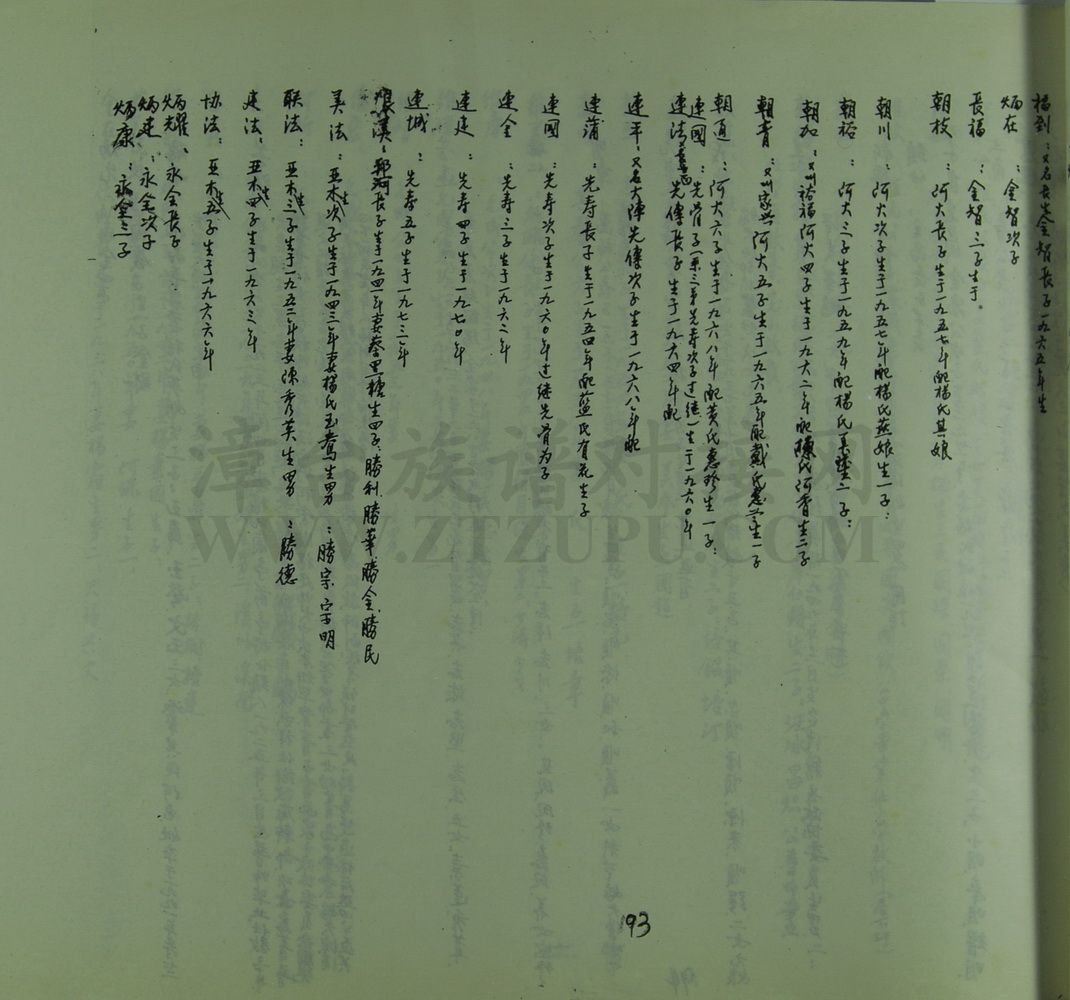 楊到：又名長生金智長子一九六五年生
炳在：金智次子
長福：金智三子生于。
朝枝：阿大長子生于一九五七年配楊氏其娘
朝川：阿大次子生于一九五七年配楊氏燕娘生一子：
朝裕：阿大三子生于一九五九年配楊氏 二子：
朝加：又叫裕福阿大四子生于一九六二年配陳氏阿香生二子
朝青：又叫家興阿大五子生于一九六五年配戴氏惠 生一子
朝通：阿大六子生于一九六八年配黄氏惠珍生一子：
連國：先骨子 三弟先寿次子过继一生于一九六0年
連法 先傳長子生于一九六四年配
連平：又名大陣先傳次子生于一九六八年配
連蒲：先寿長子生于一九五四年配蓝氏有花生子
連國：先寿次子生于一九六0年过继先骨为子
連金：先寿三子生于一九六二年
連廷：先寿四子生于一九七0年
連城：先寿五子生于一九七三年
漢：郑河長子生于一九四一年妻蔡黑糖生四子：勝利.勝華.勝金.勝民
美法：亚木次子生于一九四三年妻楊氏玉鴦生男：勝宗 守明
联法：亚木生三子生于一九五二年妻陳秀英生男：勝德
廷法：亚木生四子生于一九六三年
协法：亚木生五子生于一九六六年
炳耀：永全長子
炳建：永全次子
炳康：永全三子
漳台族谱对接网
WWW.ZTZUPU.COM
193